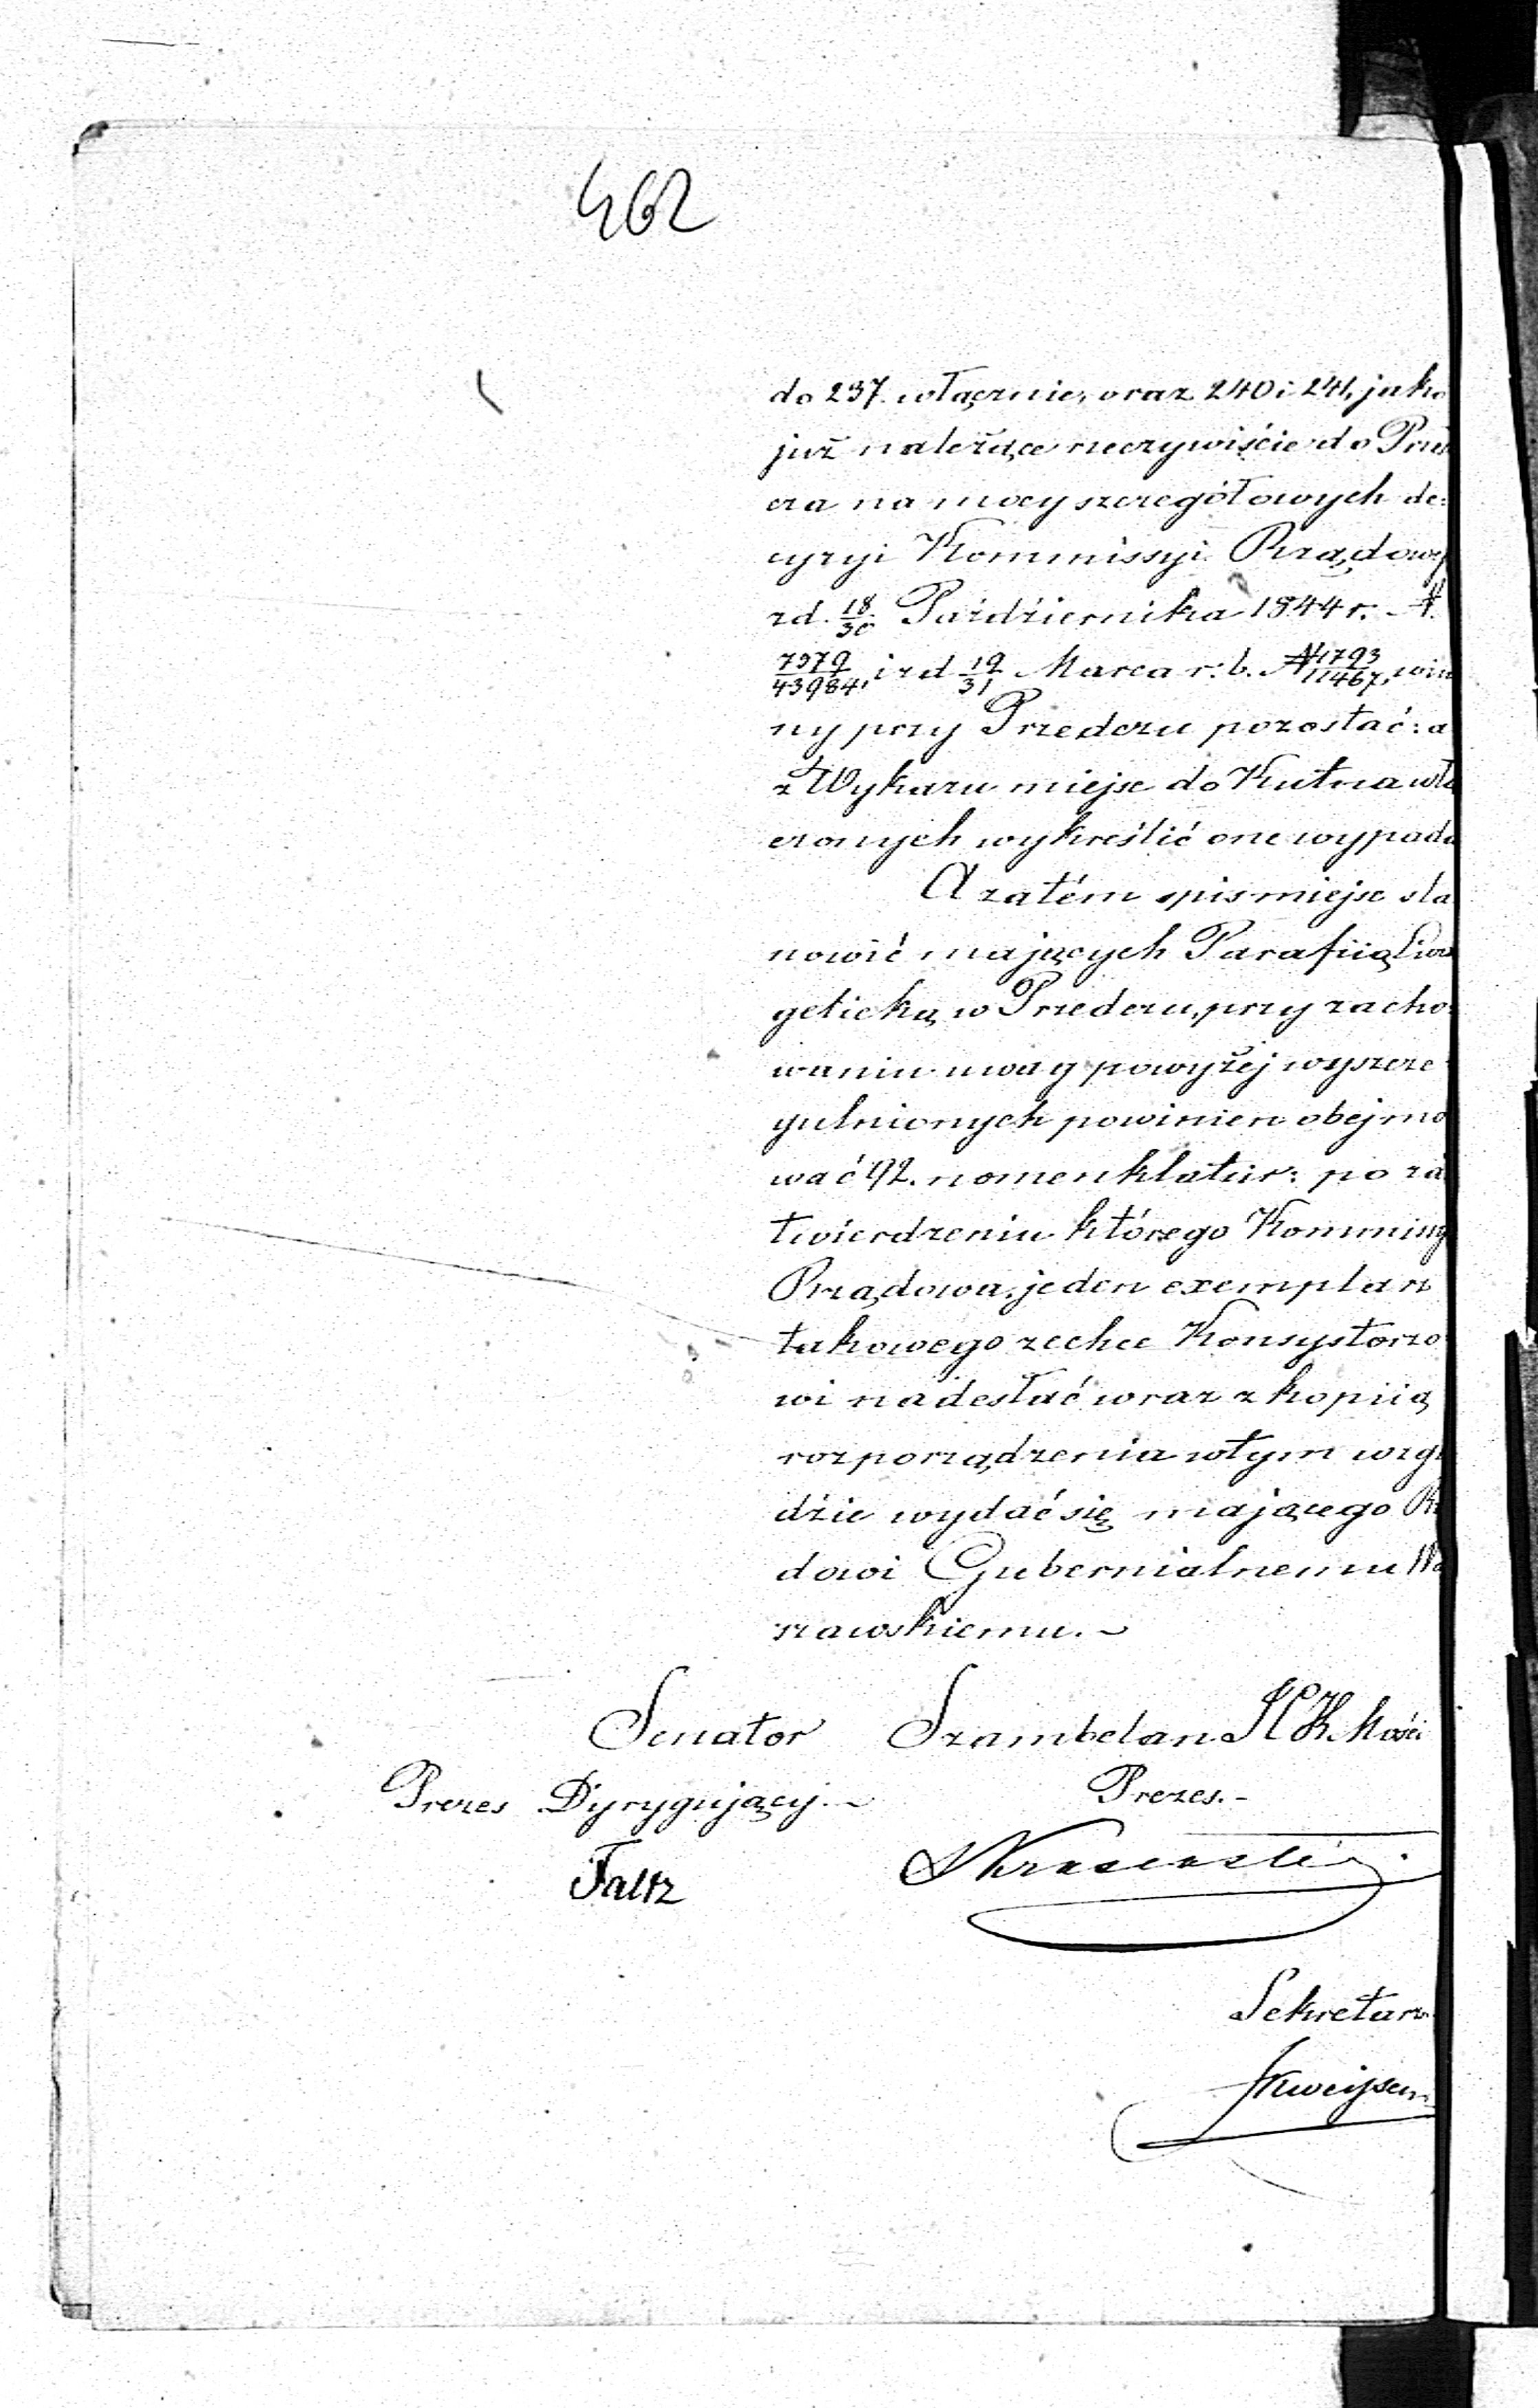 462
do 237. włącznie, oraz 240 i 241, jako
już należące rzeczywiście do Prze
cza na mocy szczegółowych de:
cyzyi Kommissyi Rządowej
zd. 18/30 Październik​a 1844 r. N.
7379/43984, i zd 19/31 Marca r: b. N 1793/11467, win
ny przy Przedczu pozostać: a
z Wykazu miejsc do Kutna włą
czonych wykreślić one wypada
A zatém spis miejsc sta
nowić mających Parafiią Ewa
gelicką w Przedczu, przy zacho:
waniu uwag powyżej wyszcze
gulnionych powinien obejmo
wać 92. nomenklatur: po za
twierdzeniu którego Kommissy
Rządowa, jeden exemplarz
takowego zechce Konsystorzo
wi nadesłać wraz z kopiią
rozporządzenia wtym wzgl
dzie wydać się mającego Rz
dowi Gubernialnemu Wa
rszawskiemu.
Senator Szambelan JCK Mości
Prezes Dyrygujący. Prezes.
Faltz
Sekretarz